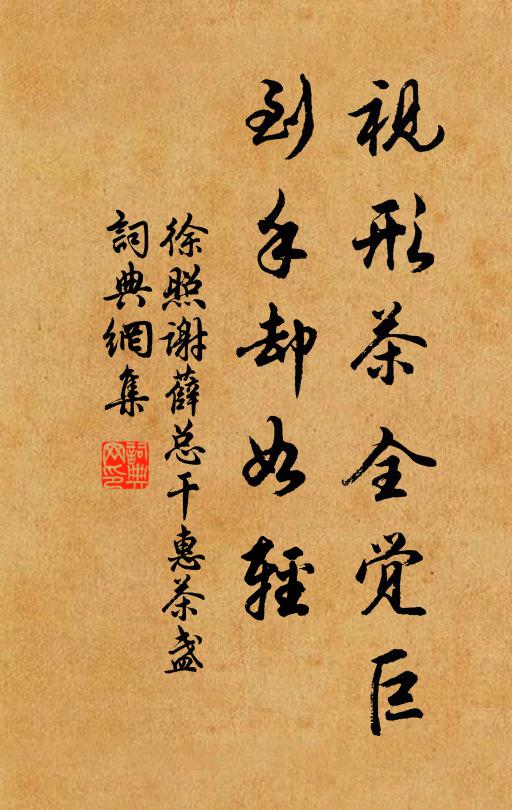 視形茶全覺巨
到手却如輕
徐照謝薛总干惠茶盏
詞典網集
詞典
网印